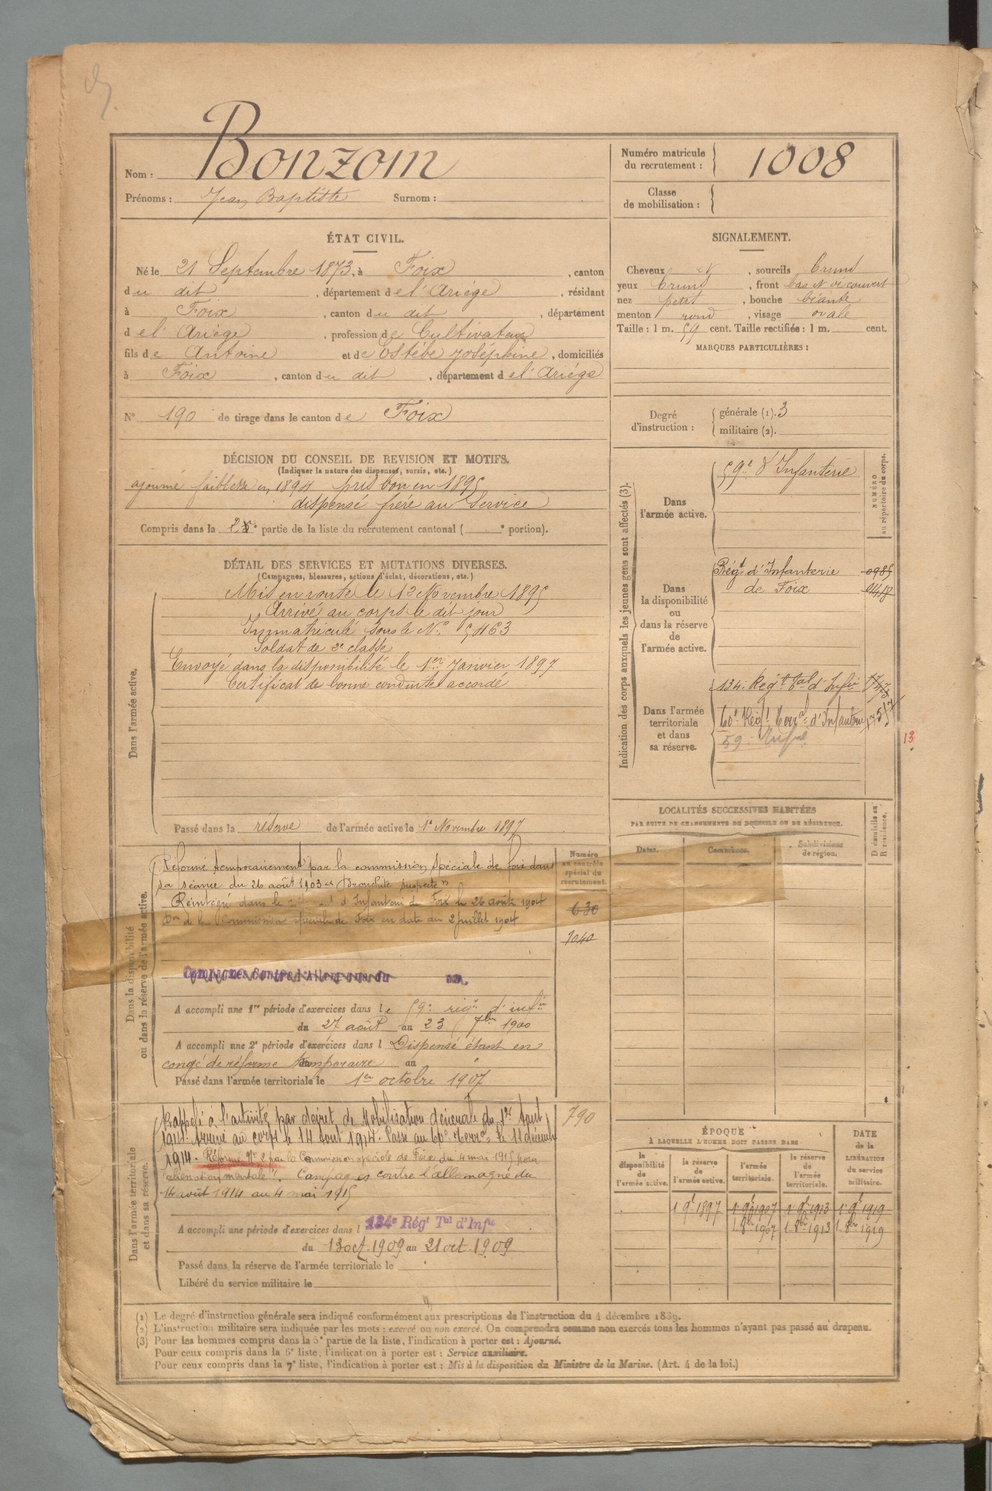 Bonzom
Nom :
Prénoms : Jean Baptiste Surnom :
Numéro matricule
du recrutement : 1008
Classe
de mobilisation :
ÉTAT CIVIL.
Né le 21 Septembre 1873, à Foix , canton
du dit , département de l'Ariège , résidant
à Foix , canton du dit , département
de l'Ariège , profession de Cultivateur
fils de Antoine et de Estèbe Joséphine , domiciliés
à Foix , canton du dit , département de l'Ariège
N° 190 de tirage dans le canton de Foix
DÉCISION DU CONSEIL DE REVISION ET MOTIFS.
(Indiquer la nature des dispenses, sursis, etc.)
ajourné faiblesse en 1894 pris bon en 1895
dispensé frère au Service
Compris dans la 2e partie de la liste du recrutement cantonal ( e portion).
SIGNALEMENT.
Cheveux , sourcils bruns
yeux bruns , front bas et découvert
nez petit , bouche béante
menton rond , visage ovale
Taille : 1 m. 59 cent. Taille rectifiée : 1 m. cent.
MARQUES PARTICULIÈRES :
Degré
d'instruction :
générale (1). 3
militaire (2).
DÉTAIL DES SERVICES ET MUTATIONS DIVERSES.
(Campagnes, blessures, actions d'éclat, décorations, etc.)
Dans l'armée active.
Mis en route le 13 Novembre 1895
Arrivé au corps le dit jour
Immatriculé sous le N° 5463
Soldat de 2e classe
Envoyé dans la disponibilité le 1er Janvier 1897
Certificat de bonne conduite accordé
Passé dans la réserve de l'armée active le 1er Novembre 1897
Indication des corps auxquels les jeunes gens sont affectés (3).
NUMÉRO
au répertoire du corps.
Dans
l'armée active.
59e d'Infanterie
Dans
la disponibilité
ou
dans la réserve
de
l'armée active.
Régt d'Infanterie
de Foix
Dans l'armée
territoriale
et dans
sa réserve.
134. Régt Tal d'Infie
60e Régt Terral d'Infanterie
59e Infie
13
LOCALITÉS SUCCESSIVES HABITÉES
PAR SUITE DE CHANGEMENTS DE DOMICILE OU DE RÉSIDENCE.
Dates. Communes. Subdivisions
de région.
D domicile ou
R résidence.
Dans la disponibilité
ou dans la réserve de l'armée active.
Numéro
au contrôle
spécial du
recrutement.
Réformé temporairement par la commission spéciale de foix dans
sa séance du 26 août 1903 "Bronchite suspecte"
Réintégré dans le d'Infanterie de Foix le 26 août 1904
Don de la Commission spéciale de Foix en date du 2 juillet 1904
630
1040
Campagnes Contre l'Allemagne du au
A accompli une 1re période d'exercices dans le 59e régt d'infie
du 27 août au 23 7bre 1900
A accompli une 2e période d'exercices dans l Dispensé étant en
congé de réforme temporaire au
Passé dans l'armée territoriale le 1er octobre 1907
Dans l'armée territoriale
et dans sa réserve.
790
Rappelé à l'activité par décret de Mobilisation Générale du 1er Août
1914. Arrivé au corps le 14 Août 1914. Passé au 60e Terral le 11 décembre
1914 - Réformé N° 2 par la Commission spéciale de Foix du 4 mai 1915 pour
"aliénation mentale". Campagnes contre l'allemagne du
14 août 1914 au 4 mai 1915
A accompli une période d'exercices dans l 134e Régt Tal d'Infie
du 13 oct. 1909 au 21 oct. 1909
Passé dans la réserve de l'armée territoriale le
Libéré du service militaire le
ÉPOQUE
À LAQUELLE L'HOMME DOIT PASSER DANS
DATE
de la
LIBÉRATION
du service
militaire.
la
disponibilité
de
l'armée active.
la réserve
de
l'armée active.
l'armée
territoriale.
la réserve
de
l'armée
territoriale.
1 9b 1897 1 9b 1907 1 9b 1913 1 9b 1919
1 8bre 1907 1 8bre 1913 1 8bre 1919
(1) Le degré d'instruction générale sera indiqué conformément aux prescriptions de l'instruction du 4 décembre 1889.
(2) L'instruction militaire sera indiquée par les mots : exercé ou non exercé. On comprendra comme non exercés tous les hommes n'ayant pas passé au drapeau.
(3) Pour les hommes compris dans la 5e partie de la liste, l'indication à porter est : Ajourné.
Pour ceux compris dans la 6e liste, l'indication à porter est : Service auxiliaire.
Pour ceux compris dans la 7e liste, l'indication à porter est : Mis à la disposition du Ministre de la Marine. (Art. 4 de la loi.)